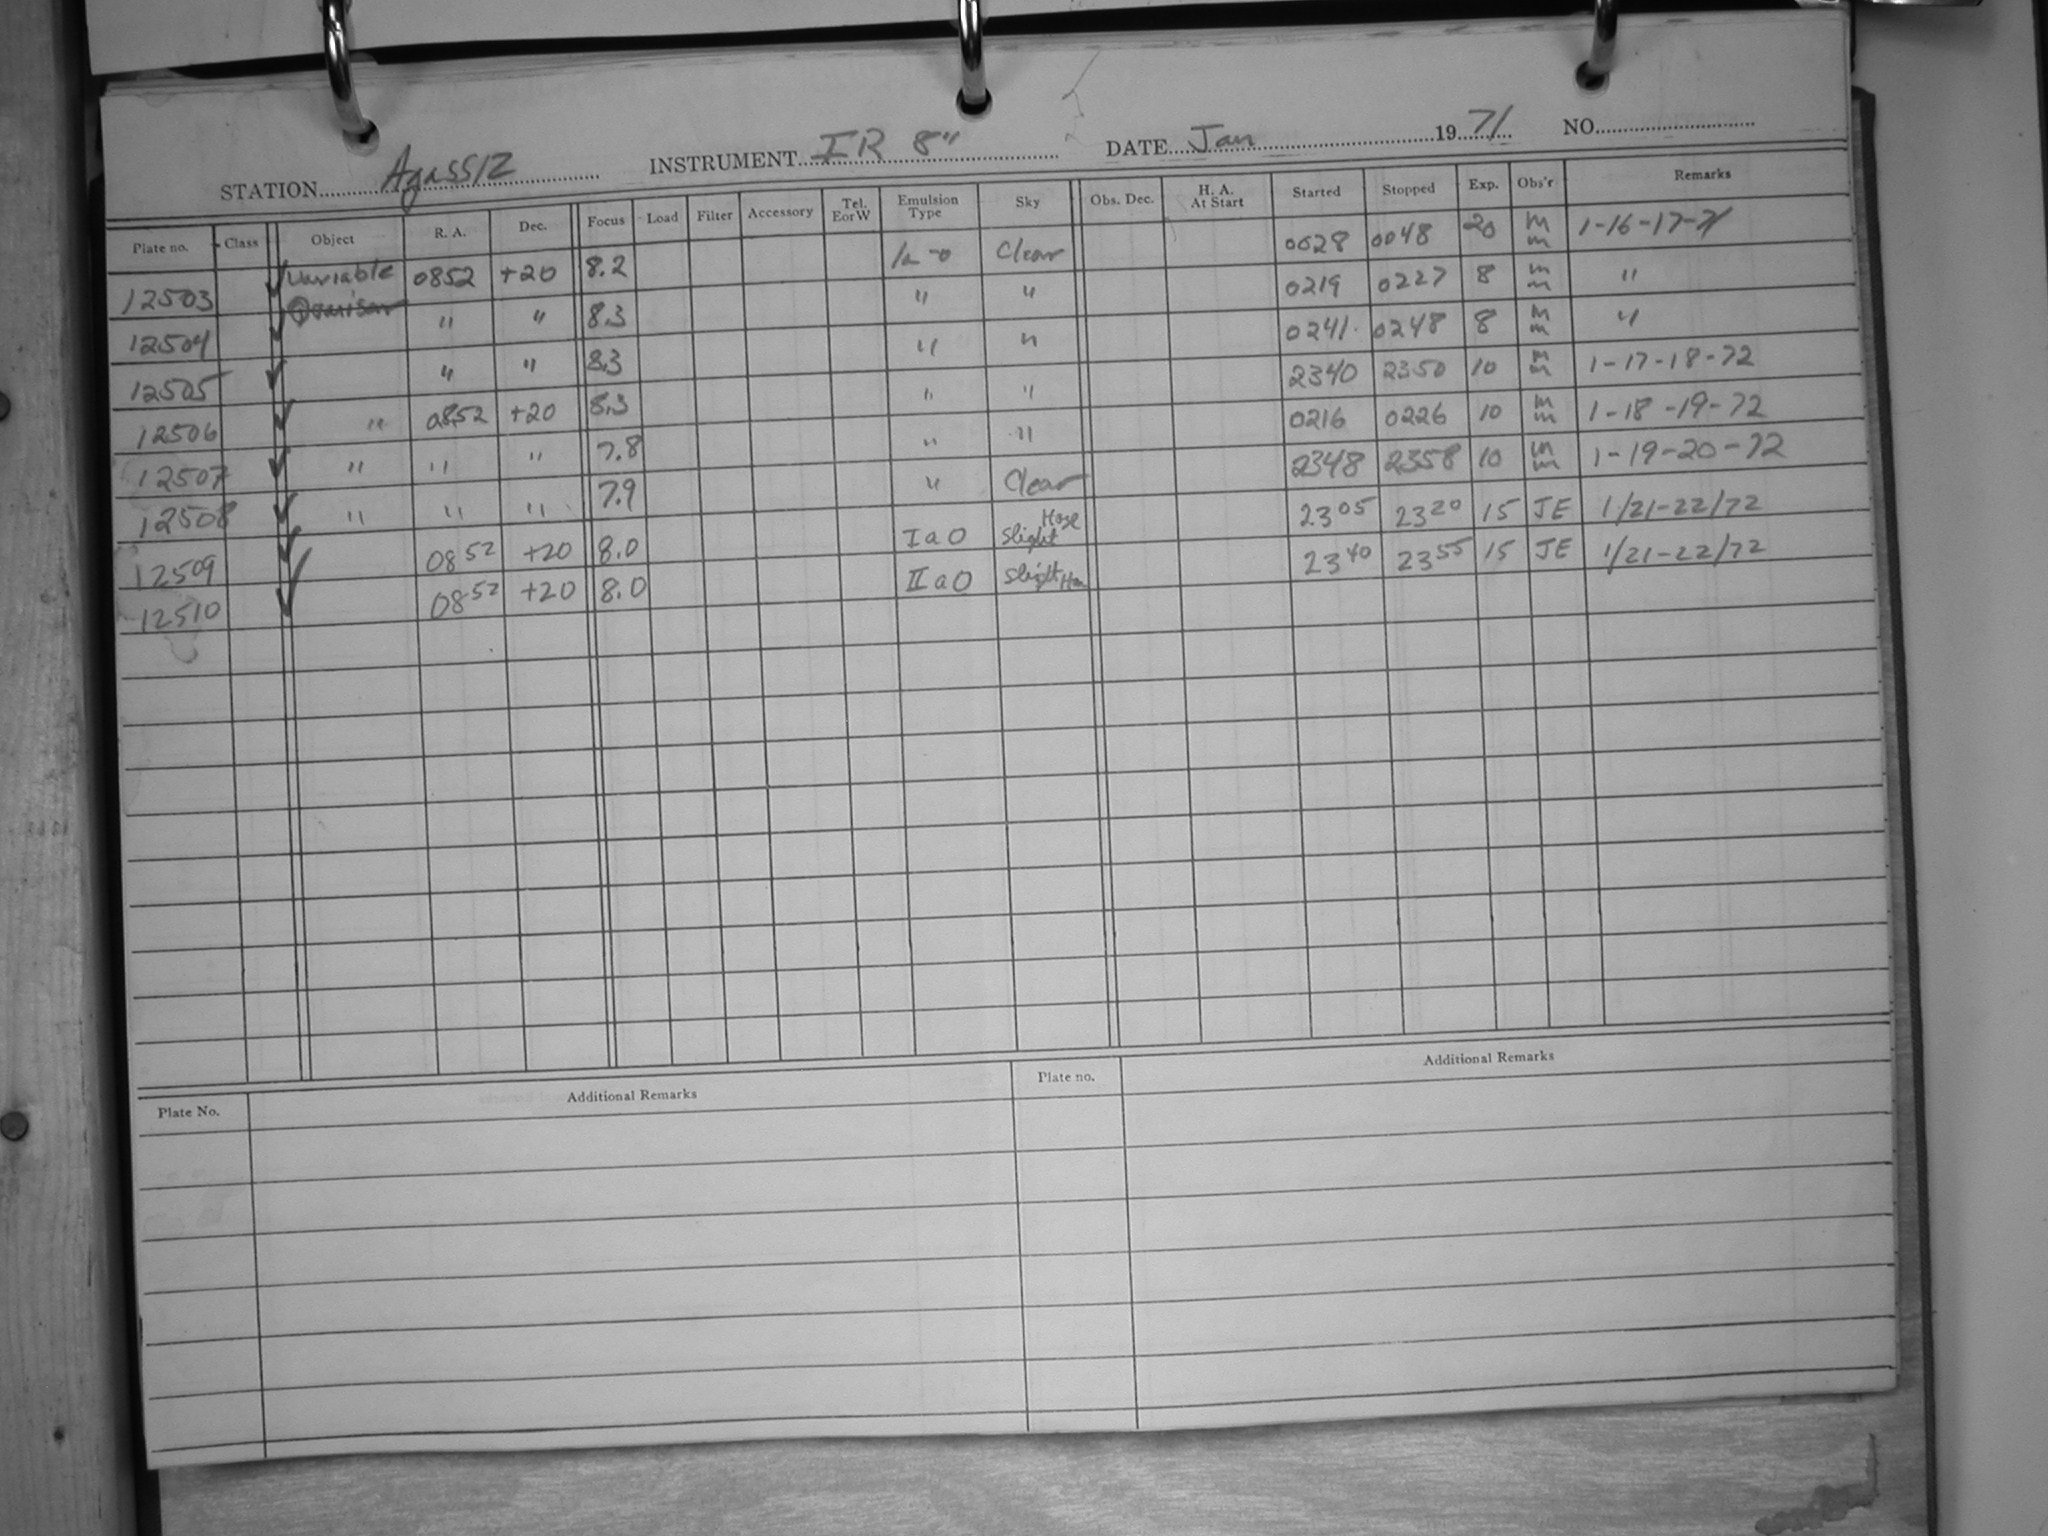 STATION Agassiz INSTRUMENT IR 8" DATE Jan 19 71 NO.
Plate no. Class Object R. A. Dec. Focus Load Filter Accessory Tel. E or W Emulsion Type Sky Obs. Dec. H. A. At Start Started Stopped Exp. Obs'r Remarks
12503 ✓ Variable 0852 +20 8.2 Ia-o Clear 0028 0048 20 m m 1-16-17-71
12504 ✓ " " 8.3 " " 0219 0227 8 m m "
12505 ✓ " " 8.3 " " 0241 0248 8 m m "
12506 ✓ " 0852 +20 8.3 " " 2340 2350 10 m m 1-17-18-72
12507 ✓ " " " 7.8 " " 0216 0226 10 m m 1-18-19-72
12508 ✓ " " " 7.9 " Clear 2348 2358 10 m m 1-19-20-72
12509 ✓ 0852 +20 8.0 IaO Slight Haze 2305 2320 15 JE 1/21-22/72
12510 ✓ 0852 +20 8.0 IIaO Slight 2340 2355 15 JE 1/21-22/72
Plate No. Additional Remarks Plate no. Additional Remarks